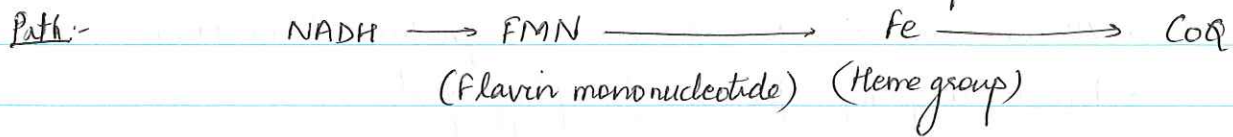 Path:- NADH → FMN → Fe → CoQ
(Flavin mononucleotide) (Heme group)